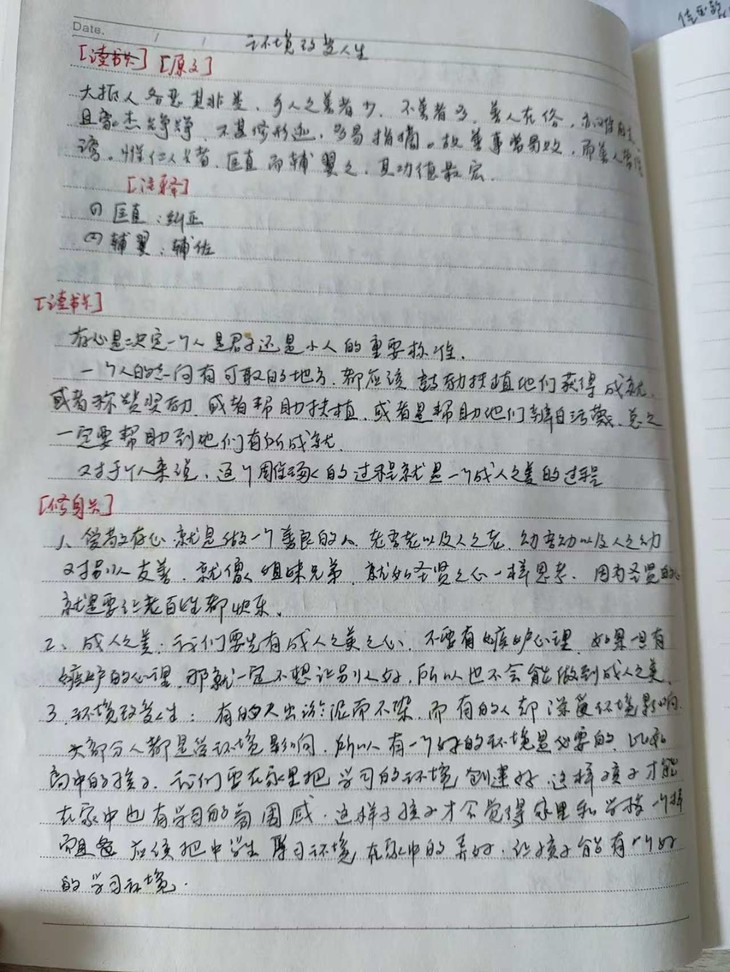 Date.
环境改变人生
[读书共] [原文]
大抵人各恶其非类,乡人之善者少,不善者多。善人在俗,亦难自立。
且豪杰铮铮,不甚修形迹,多易指摘。故善事常易败,而善人常得
谤。惟仁人长者,匡直而辅翼之,其功德最宏。
[注释]
(1) 匡直:纠正
(2) 辅翼:辅佐
[读书共]
存心是决定一个人是君子还是小人的重要标准。
一个人的志向有可取的地方,都应该鼓励扶植他们获得成就,
或者称赞奖励,或者帮助扶植,或者是帮助他们辩白污蔑,总之
一定要帮助到他们有所成就。
对于个人来说,这个周住的过程就是一个成人之美的过程
[修身共]
1、爱敬存心 就是做一个善良的人,老吾老以及人之老,幼吾幼以及人之幼
对别人友善,就像姐妹兄弟,就如圣贤之心一样思考,因为圣贤的心
就是要让老百姓都快乐。
2、成人之美:我们要先有成人之美之心,不要有嫉妒心理,如果一旦有
嫉妒的心理,那就一定不想让别人好,所以也不会能做到成人之美。
3、环境改变人生:有的人出淤泥而不染,而有的人却深受环境影响
大部分人都是受环境影响,所以有一个好的环境是必要的,比如
高中的孩子,我们要在家里把学习的环境创建好,这样孩子才能
在家中也有学习的氛围感,这样子孩子才会觉得家里和学校一个样
而且 应该把中学生学习环境在家中的弄好,让孩子能有一个好
的学习环境。